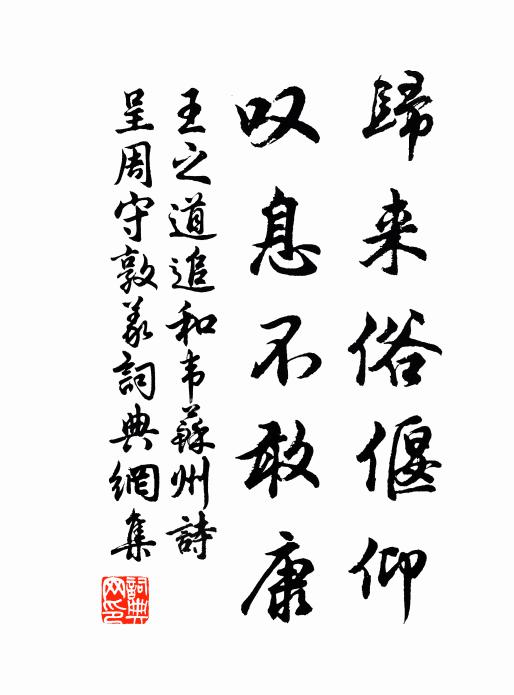 歸来俗偃仰
叹息不敢康
王之道追和韦蘇州詩
呈周守敦义詞典網集
詞典網印